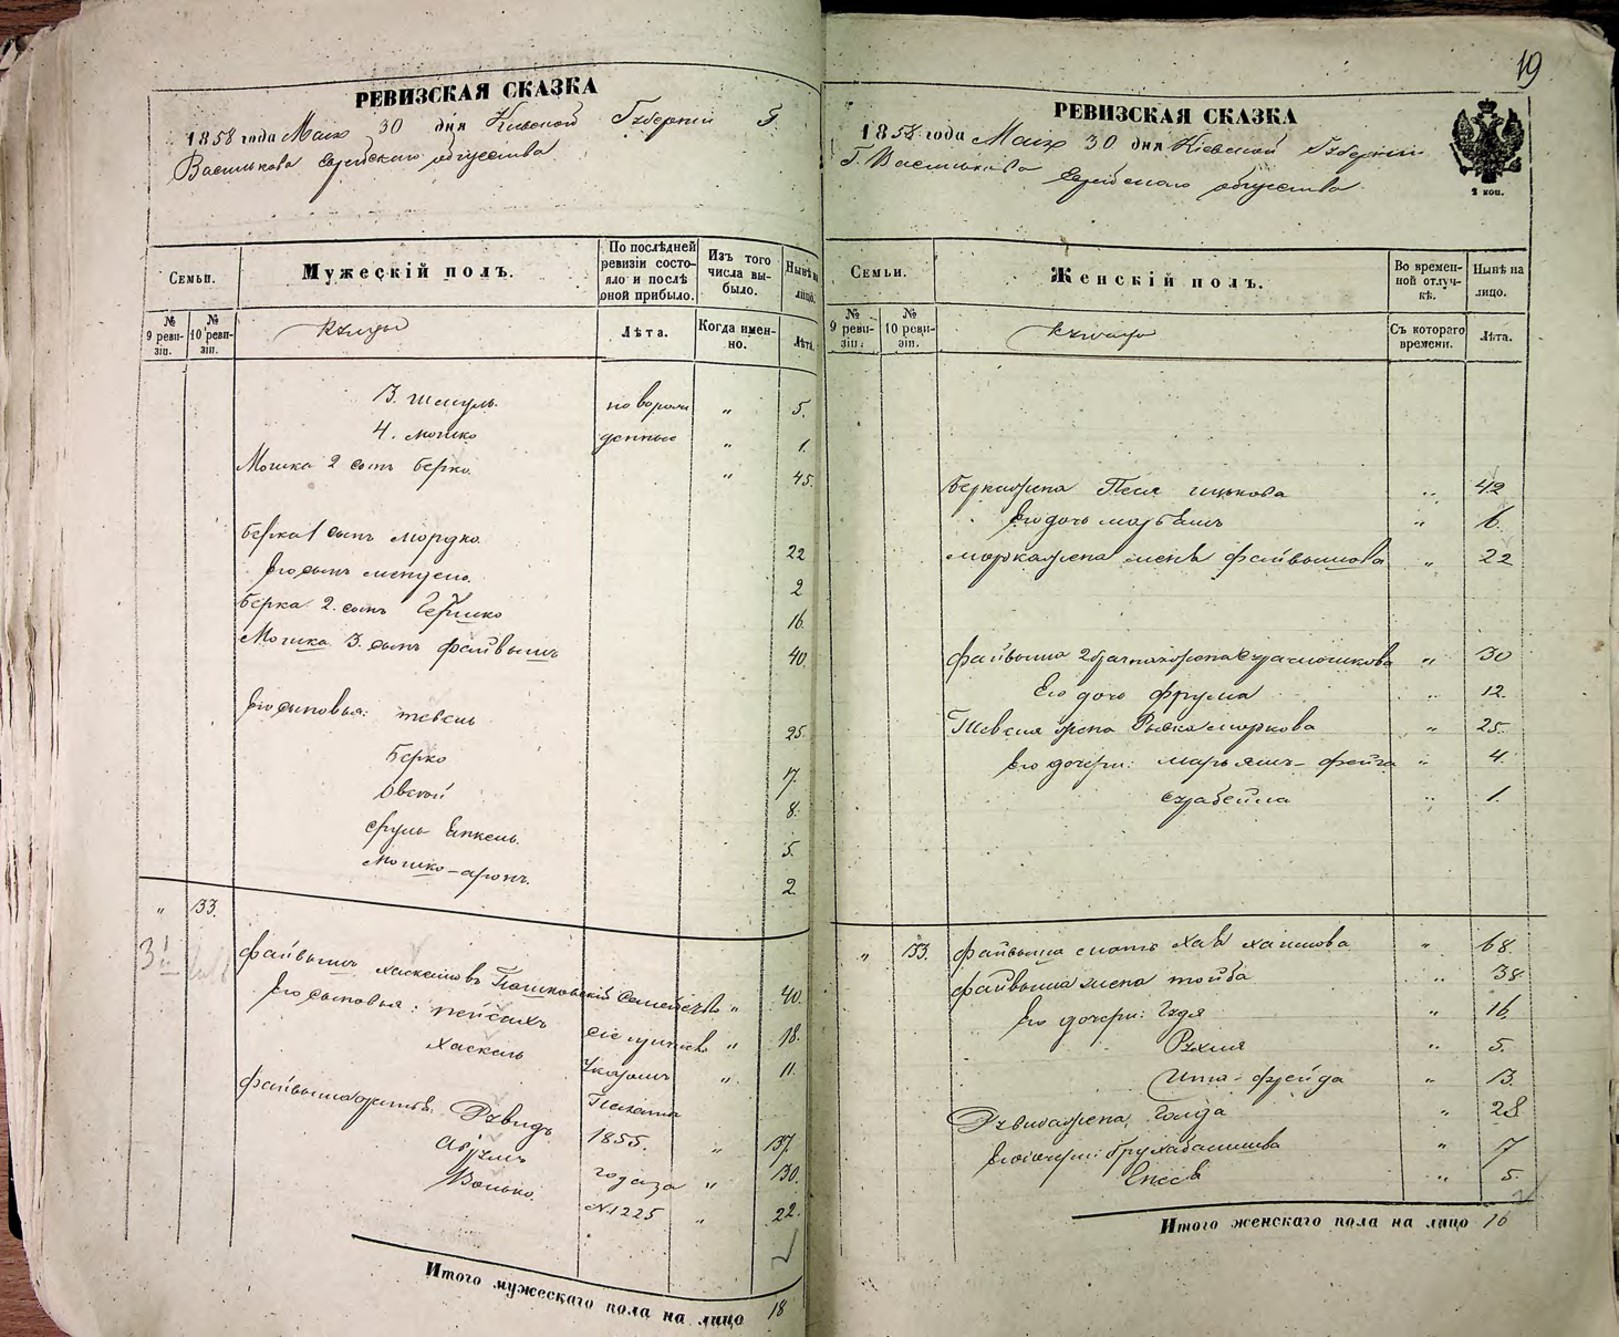 РЕВИЗСКАЯ СКАЗКА
1858 года Мая 30 дня Киевской Губернии Г.
Василькова Еврейского общества
Семьи.
Мужескій полъ.
По послѣдней ревизіи состояло и послѣ оной прибыло.
Изъ того числа выбыло.
Нынѣ на лицо.
№ 9 ревизіи.
№ 10 ревизіи.
Лѣта.
Когда именно.
Лѣта.
3. Шмуль новорож „ 5.
4. Мошко денные „ 1.
Мошка 2 сынъ Берко „ 45.
Берка 1 сынъ Мордко 22
Его сынъ 2
Берка 2. сынъ Гершко 16
Мошка 3. сынъ Файвишъ 40
Его сыновья: Тевель 25.
Берко 17.
Овсей 8.
Сруль Янкель 5.
Мошко-Аронъ. 2
„ 33.
Файвишъ Хаскелевъ Семейство „ 40.
Его сыновья: Пейсахъ сіе „ 18.
Хаскель Указомъ „ 11.
Файвиша братья: Палаты
1855. „ 37.
года за „ 30.
Волько №1225 „ 22.
Итого мужескаго пола на лицо 18
19
РЕВИЗСКАЯ СКАЗКА
1858 года Мая 30 дня Кіевской Губерніи
Г. Василькова Еврейского общества
2 коп.
Семьи.
Женскій полъ.
Во временной отлучкѣ.
Нынѣ на лицо.
№ 9 ревизіи.
№ 10 ревизіи.
Съ котораго времени.
Лѣта.
Берка жена Песя Ицькова „ 42
Его дочь Марьямъ „ 6.
Морка жена Файвишова „ 22
Файвиша 2 брачна жена Сура Мошкова „ 30
Его дочь Фрума „ 12.
Тевеля жена Рывка Моркова „ 25.
Его дочери: Марьямъ-Фейга „ 4.
Сура Бейла „ 1.
„ 33. Файвиша мать Хая Хаимова „ 68.
Файвиша жена Тойба „ 38
Его дочери: Гудя „ 16.
Рухля „ 5.
Ита-Фрейда „ 13.
жена Голда „ 28
Его дочери: „ 7
„ 5.
Итого женскаго пола на лицо 16